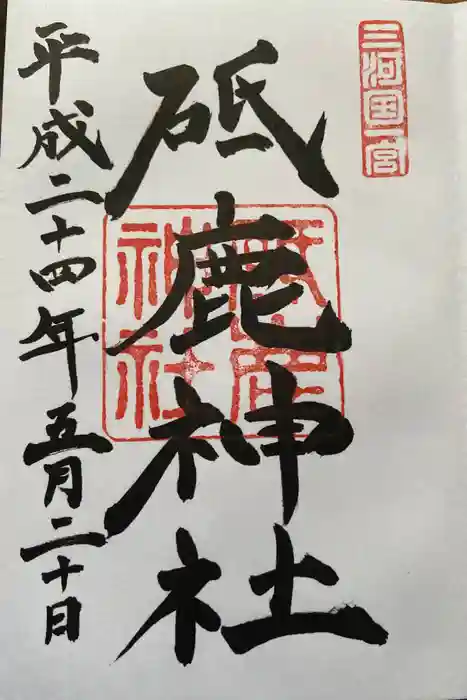 三河国一宮
砥鹿神社
砥鹿神社
平成二十四年五月二十日